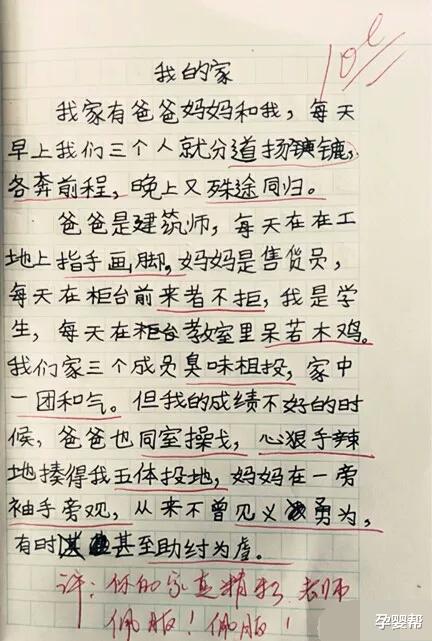 100
我的家
我家有爸爸妈妈和我，每天
早上我们三个人就分道扬镳，
各奔前程，晚上又殊途同归。
爸爸是建筑师，每天在在工
地上指手画脚，妈妈是售货员，
每天在柜台前来者不拒，我是学
生，每天在教室里呆若木鸡。
我们家三个成员臭味相投，家中
一团和气。但我的成绩不好的时
候，爸爸也同室操戈，心狠手辣
地揍得我五体投地，妈妈在一旁
袖手旁观，从来不曾见义勇为，
有时甚至助纣为虐。
评：你的家真精彩，老师
佩服！佩服！
孕婴帮